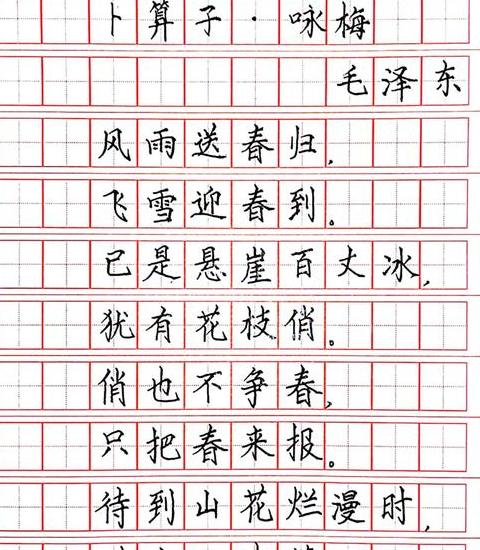 卜算子·咏梅
毛泽东
风雨送春归，
飞雪迎春到。
已是悬崖百丈冰，
犹有花枝俏。
俏也不争春，
只把春来报。
待到山花烂漫时，